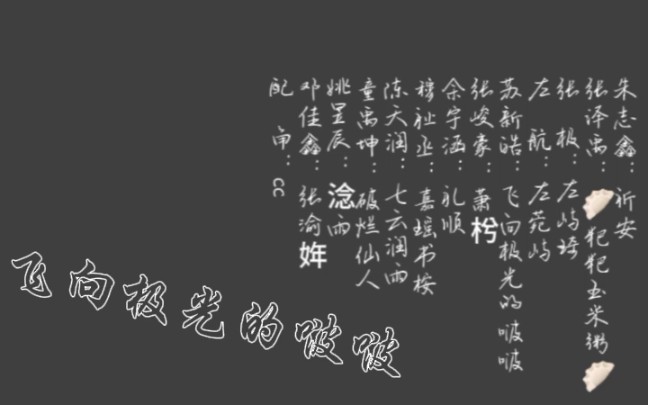 朱志鑫：祈安
张泽禹：🥟犯犯玉米粥🥟
张极：左屿瑶
左航：左苑屿
苏新皓：飞向极光的啵啵
张峻豪：萧枍
余宇涵：礼顺
穆祉丞：喜瑶书桉
陈天润：七云润雨
童禹坤：破烂仙人
姚昱辰：淰雨
邓佳鑫：张渝姩
配角：cc
飞向极光的啵啵